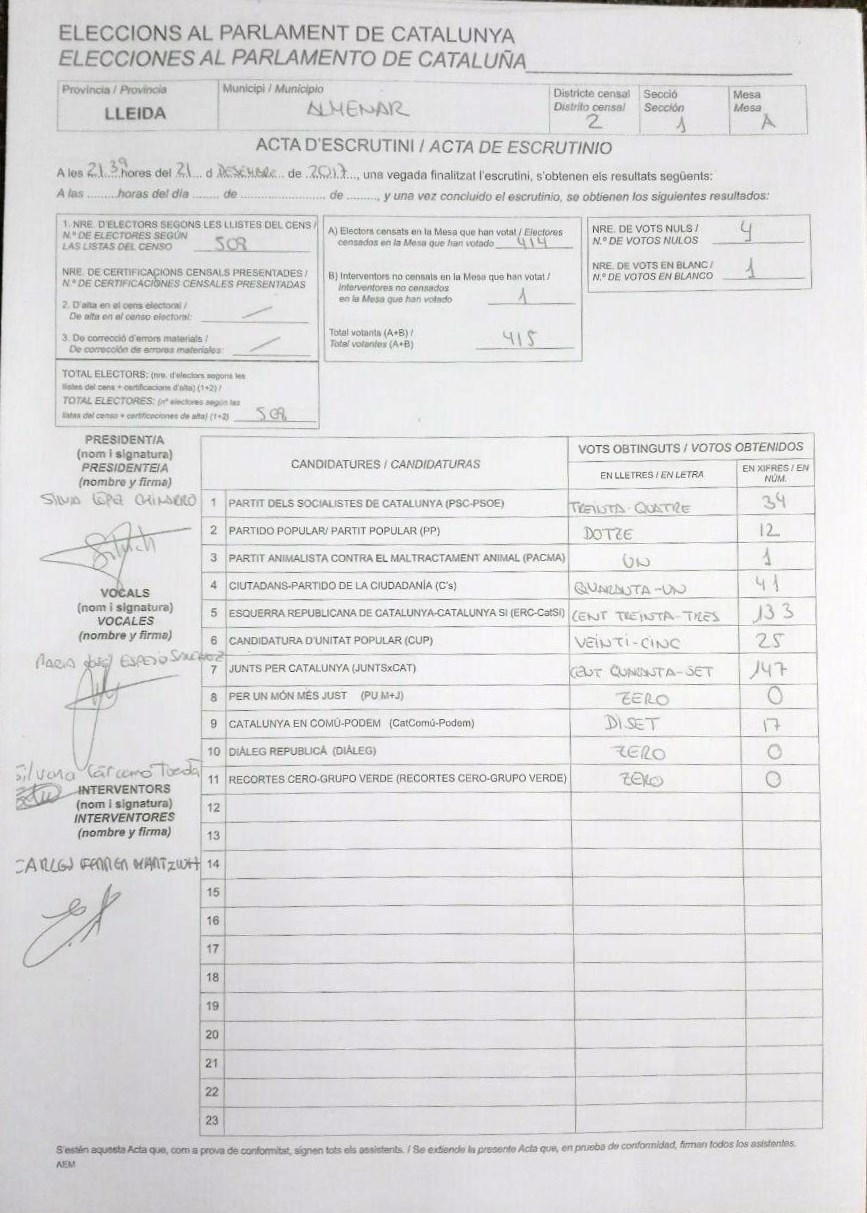 ELECCIONS AL PARLAMENT DE CATALUNYA
ELECCIONES AL PARLAMENTO DE CATALUÑA
Província / Provincia
LLEIDA
Municipi / Municipio
ALMENAR
Districte censal
Distrito censal
2
Secció
Sección
1
Mesa
Mesa
A
ACTA D'ESCRUTINI / ACTA DE ESCRUTINIO
A les 21.39 hores del 21 d DESEMBRE de 2017, una vegada finalitzat l'escrutini, s'obtenen els resultats següents:
A las .........horas del día ...... de ........................ de ........., y una vez concluido el escrutinio, se obtienen los siguientes resultados:
1. NRE. D'ELECTORS SEGONS LES LLISTES DEL CENS /
N.º DE ELECTORES SEGÚN
LAS LISTAS DEL CENSO 508
NRE. DE CERTIFICACIONS CENSALS PRESENTADES /
N.º DE CERTIFICACIONES CENSALES PRESENTADAS
2. D'alta en el cens electoral /
De alta en el censo electoral:
3. De correcció d'errors materials /
De corrección de errores materiales:
TOTAL ELECTORS: (nre. d'electors segons les
llistes del cens + certificacions d'alta) (1+2) /
TOTAL ELECTORES: (nº electores según las
listas del censo + certificaciones de alta) (1+2) 508
A) Electors censats en la Mesa que han votat / Electores
censados en la Mesa que han votado 414
B) Interventors no censats en la Mesa que han votat /
Interventores no censados
en la Mesa que han votado 1
Total votants (A+B) /
Total votantes (A+B) 415
NRE. DE VOTS NULS /
N.º DE VOTOS NULOS 4
NRE. DE VOTS EN BLANC /
N.º DE VOTOS EN BLANCO 1
PRESIDENT/A
(nom i signatura)
PRESIDENTE/A
(nombre y firma)
SILVIA LOPEZ CHINARRO
VOCALS
(nom i signatura)
VOCALES
(nombre y firma)
MARIA JOSÉ ESPEJO SANCHEZ
Silvana Cárcamo
INTERVENTORS
(nom i signatura)
INTERVENTORES
(nombre y firma)
CARLES
CANDIDATURES / CANDIDATURAS
VOTS OBTINGUTS / VOTOS OBTENIDOS
EN LLETRES / EN LETRA
EN XIFRES / EN
NÚM.
1 PARTIT DELS SOCIALISTES DE CATALUNYA (PSC-PSOE) TREINTA-QUATRE 34
2 PARTIDO POPULAR/ PARTIT POPULAR (PP) DOTZE 12
3 PARTIT ANIMALISTA CONTRA EL MALTRACTAMENT ANIMAL (PACMA) UN 1
4 CIUTADANS-PARTIDO DE LA CIUDADANÍA (C's) QUARANTA-UN 41
5 ESQUERRA REPUBLICANA DE CATALUNYA-CATALUNYA SI (ERC-CatSI) CENT TREINTA-TRES 133
6 CANDIDATURA D'UNITAT POPULAR (CUP) VEINTI-CINC 25
7 JUNTS PER CATALUNYA (JUNTSxCAT) CENT QUARANTA-SET 147
8 PER UN MÓN MÉS JUST (PU M+J) ZERO 0
9 CATALUNYA EN COMÚ-PODEM (CatComú-Podem) DISET 17
10 DIÀLEG REPUBLICÀ (DIÀLEG) ZERO 0
11 RECORTES CERO-GRUPO VERDE (RECORTES CERO-GRUPO VERDE) ZERO 0
12
13
14
15
16
17
18
19
20
21
22
23
S'estén aquesta Acta que, com a prova de conformitat, signen tots els assistents. / Se extiende la presente Acta que, en prueba de conformidad, firman todos los asistentes.
AEM